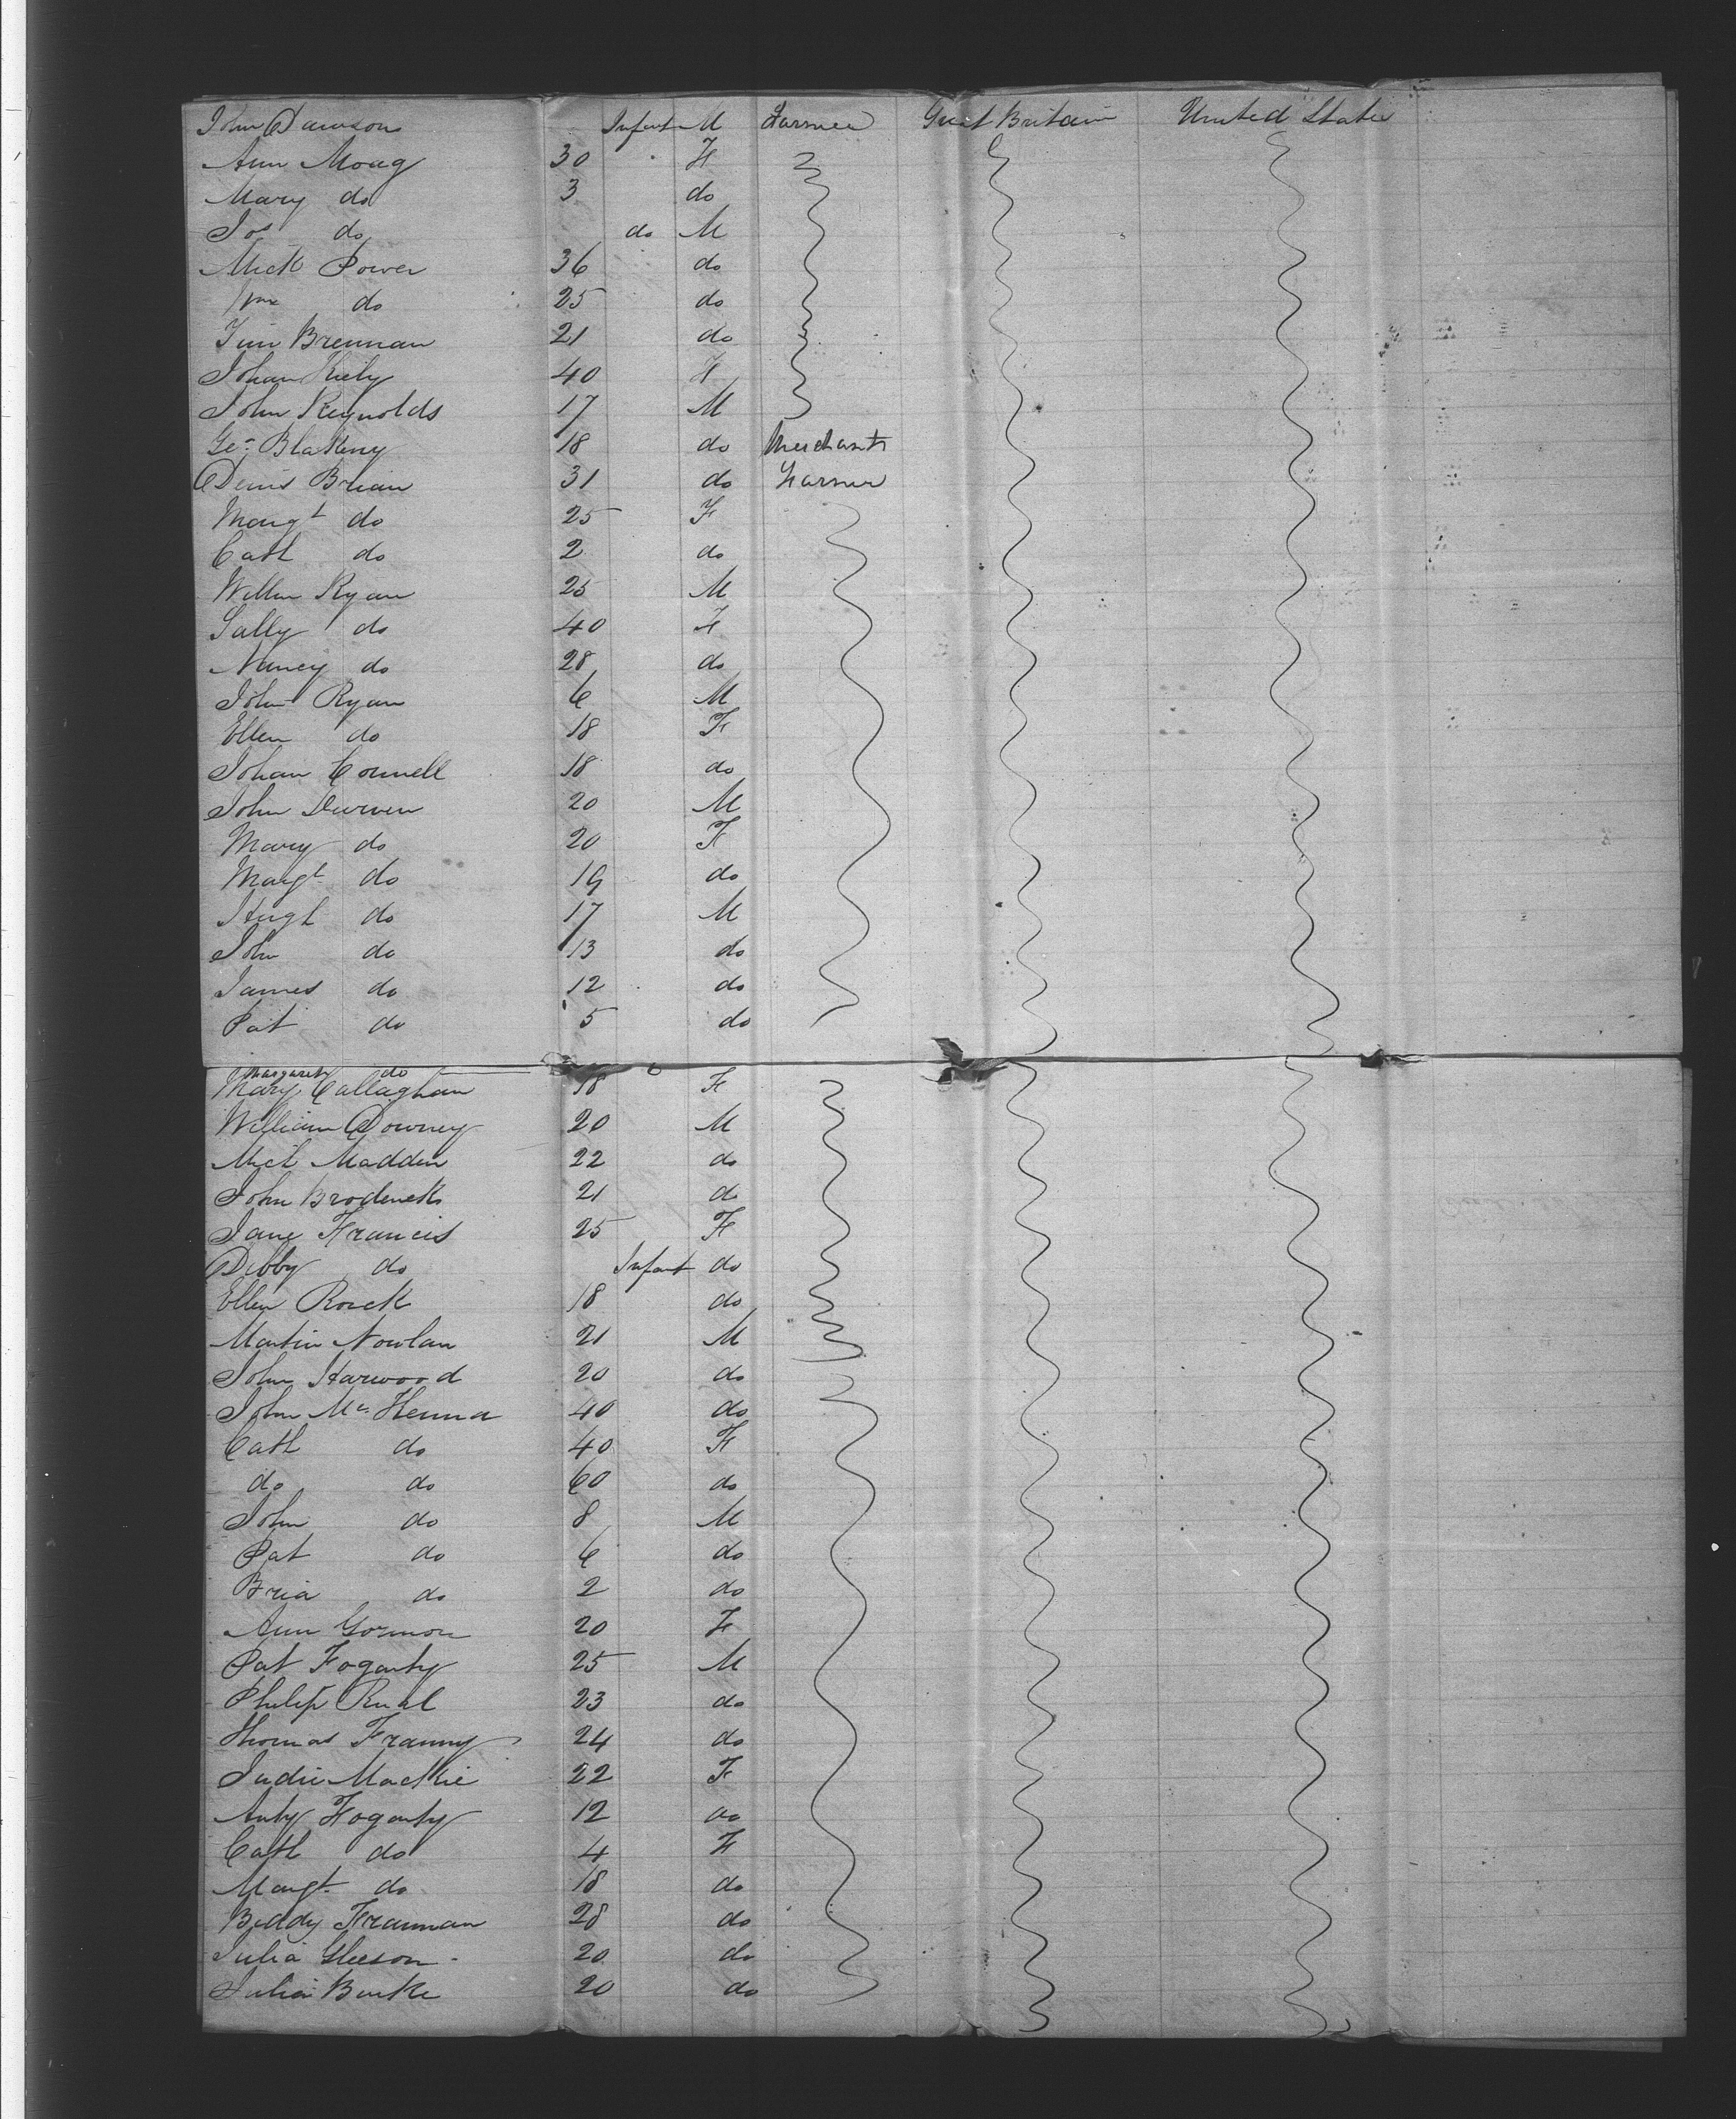 John Dawson Infant M Farmer Great Britain United States
Ann Moag 30 F
Mary do 3 do
Jos do do M
Mick Power 36 do
Wm do 25 do
Tim Brennan 21 do
Johan Kiely 40 F
John Reynolds 17 M
Geo Blakeny 18 do Merchants
Denis Brian 31 do Farmer
Margt do 25 F
Cath do 2 do
Willm Ryan 25 M
Sally do 40 F
Nancy do 28 do
John Ryan 6 M
Ellen do 18 F
Johan Connell 18 do
John 20 M
Mary do 20 F
Margt do 19 do
Hugh do 17 M
John do 13 do
James do 12 do
Pat do 5 do
Margaret do 6
Mary Callaghan 18 F
William Downey 20 M
Mick Madden 22 do
John Broderick 21 do
Jane Francis 25 F
Debby do Infant do
Ellen Rorck 18 do
Martin Nowlan 21 M
John Harwood 20 do
John Mc Henna 40 do
Cath do 40 F
do do 60 do
John do 8 M
Pat do 6 do
Bria do 2 do
Ann Gormon 20 F
Pat Fogarty 25 M
Philip 23 do
Thomas Franny 24 do
Judie Mackie 22 F
Anty Fogarty 12 do
Cath do 4 F
Margt do 18 do
Biddy Frannan 28 do
Julia Gleeson 20 do
Julia Burke 20 do